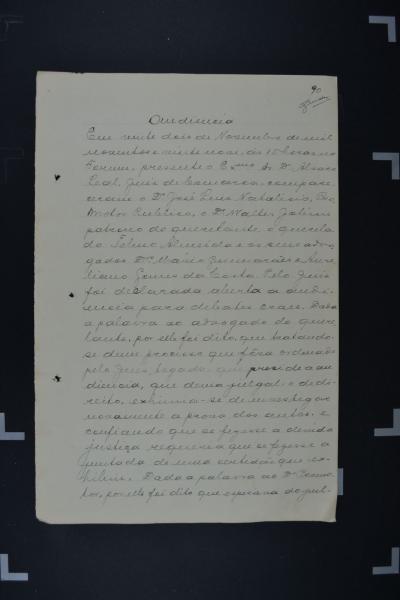 90
Audiencia
Em vinte dois de Novembro de mil
novecentos e vinte nove, ás 10 horas no
Forum, presente o Exmo Sr. Dr. Alvaro
Leal, Juiz de Comarca, compare-
ceram o Dr. José Luna Natalicio, Pro-
motor Publico, o Dr. Walter Jobim
patrono do querelante, o querela-
do Telmo Almeida e os seus advo-
gados Drs. Mario Guimarães e Aure-
liano Gomes da Costa. Pelo Juiz
foi declarada aberta a audi-
encia para debates oraes. Dada
a palavra ao advogado do quere-
lante, por elle foi dito, que tratando-
se de um processo que fôra ordenado
pelo Juiz, togado que preside a au-
diencia, que devia julgal-o de di-
reito, eximia-se de investigar
novamente a prova dos autos, e
confiando que se fizesse a devida
justiça requeria que se fizesse a
juntada de uma certidão que ex-
hibiu. Dada a palavra ao Dr. Promo-
tor, por elle foi dito que esperava do jul-